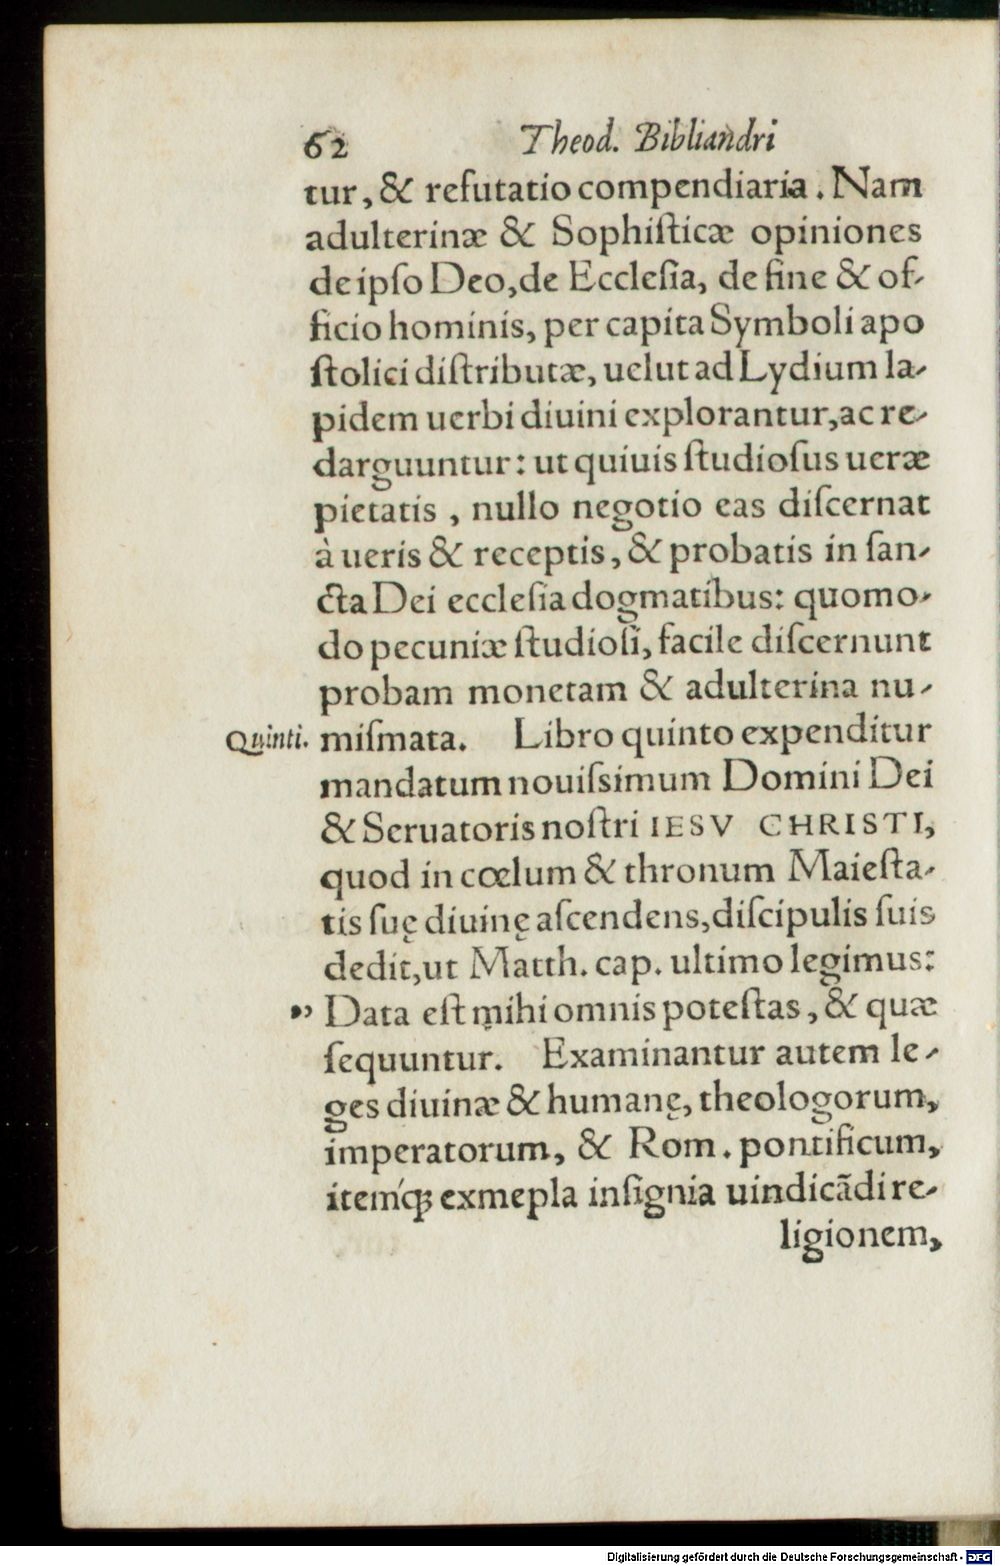 62 Theod. Bibliandri
tur, & refutatio compendiaria. Nam
adulterinæ & Sophiſticæ opiniones
de ipſo Deo, de Eccleſia, de fine & of-
ficio hominis, per capita Symboli apo
ſtolici diſtributæ, uelut ad Lydium la-
pidem uerbi diuini explorantur, ac re-
darguuntur: ut quiuis ſtudioſus ueræ
pietatis, nullo negotio eas diſcernat
à ueris & receptis, & probatis in ſan-
cta Dei eccleſia dogmatibus: quomo-
do pecuniæ ſtudioſi, facile diſcernunt
probam monetam & adulterina nu-
Quinti. miſmata. Libro quinto expenditur
mandatum nouiſsimum Domini Dei
& Seruatoris noſtri IESV CHRISTI,
quod in cœlum & thronum Maieſta-
tis ſuę diuinę aſcendens, diſcipulis ſuis
dedit, ut Matth. cap. ultimo legimus:
„ Data eſt mihi omnis poteſtas, & quæ
ſequuntur. Examinantur autem le-
ges diuinæ & humanę, theologorum,
imperatorum, & Rom. pontificum,
itemq́; exmepla inſignia uindicãdi re-
ligionem,
Digitalisierung gefördert durch die Deutsche Forschungsgemeinschaft - DFG